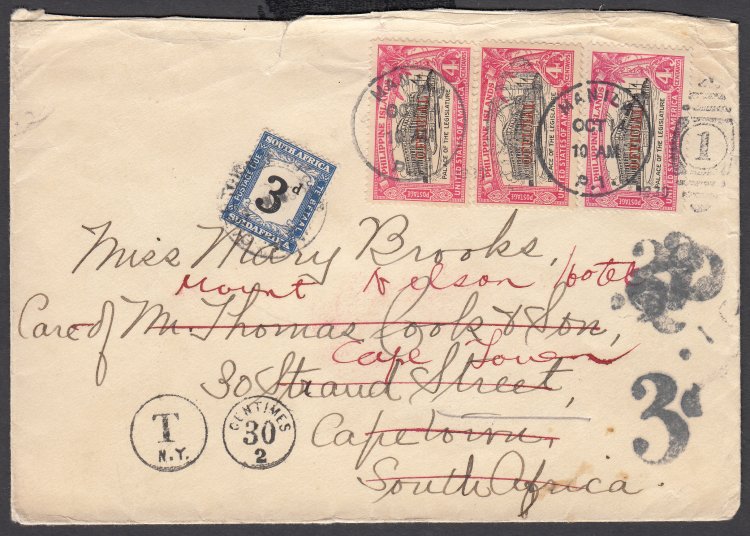 4
CENTAVOS
PHILIPPINE ISLANDS
PALACE OF THE LEGISLATURE
UNITED STATES OF AMERICA
POSTAGE
4
CENTAVOS
PHILIPPINE ISLANDS
PALACE OF THE LEGISLATURE
UNITED STATES OF AMERICA
POSTAGE
4
CENTAVOS
PHILIPPINE ISLANDS
PALACE OF THE LEGISLATURE
UNITED STATES OF AMERICA
POSTAGE
MANILA
OCT
10 AM
P.I.
1
SOUTH AFRICA
POSTAGE DUE
3d
TE BETAAL
SUIDAFRIKA
Miss Mary Brooks,
Mount Nelson Hotel
Care of Mr. Thomas Cook & Son,
Cape Town
30 Strand Street,
Capetown,
South Africa.
3d
T
N.Y.
CENTIMES
30
2